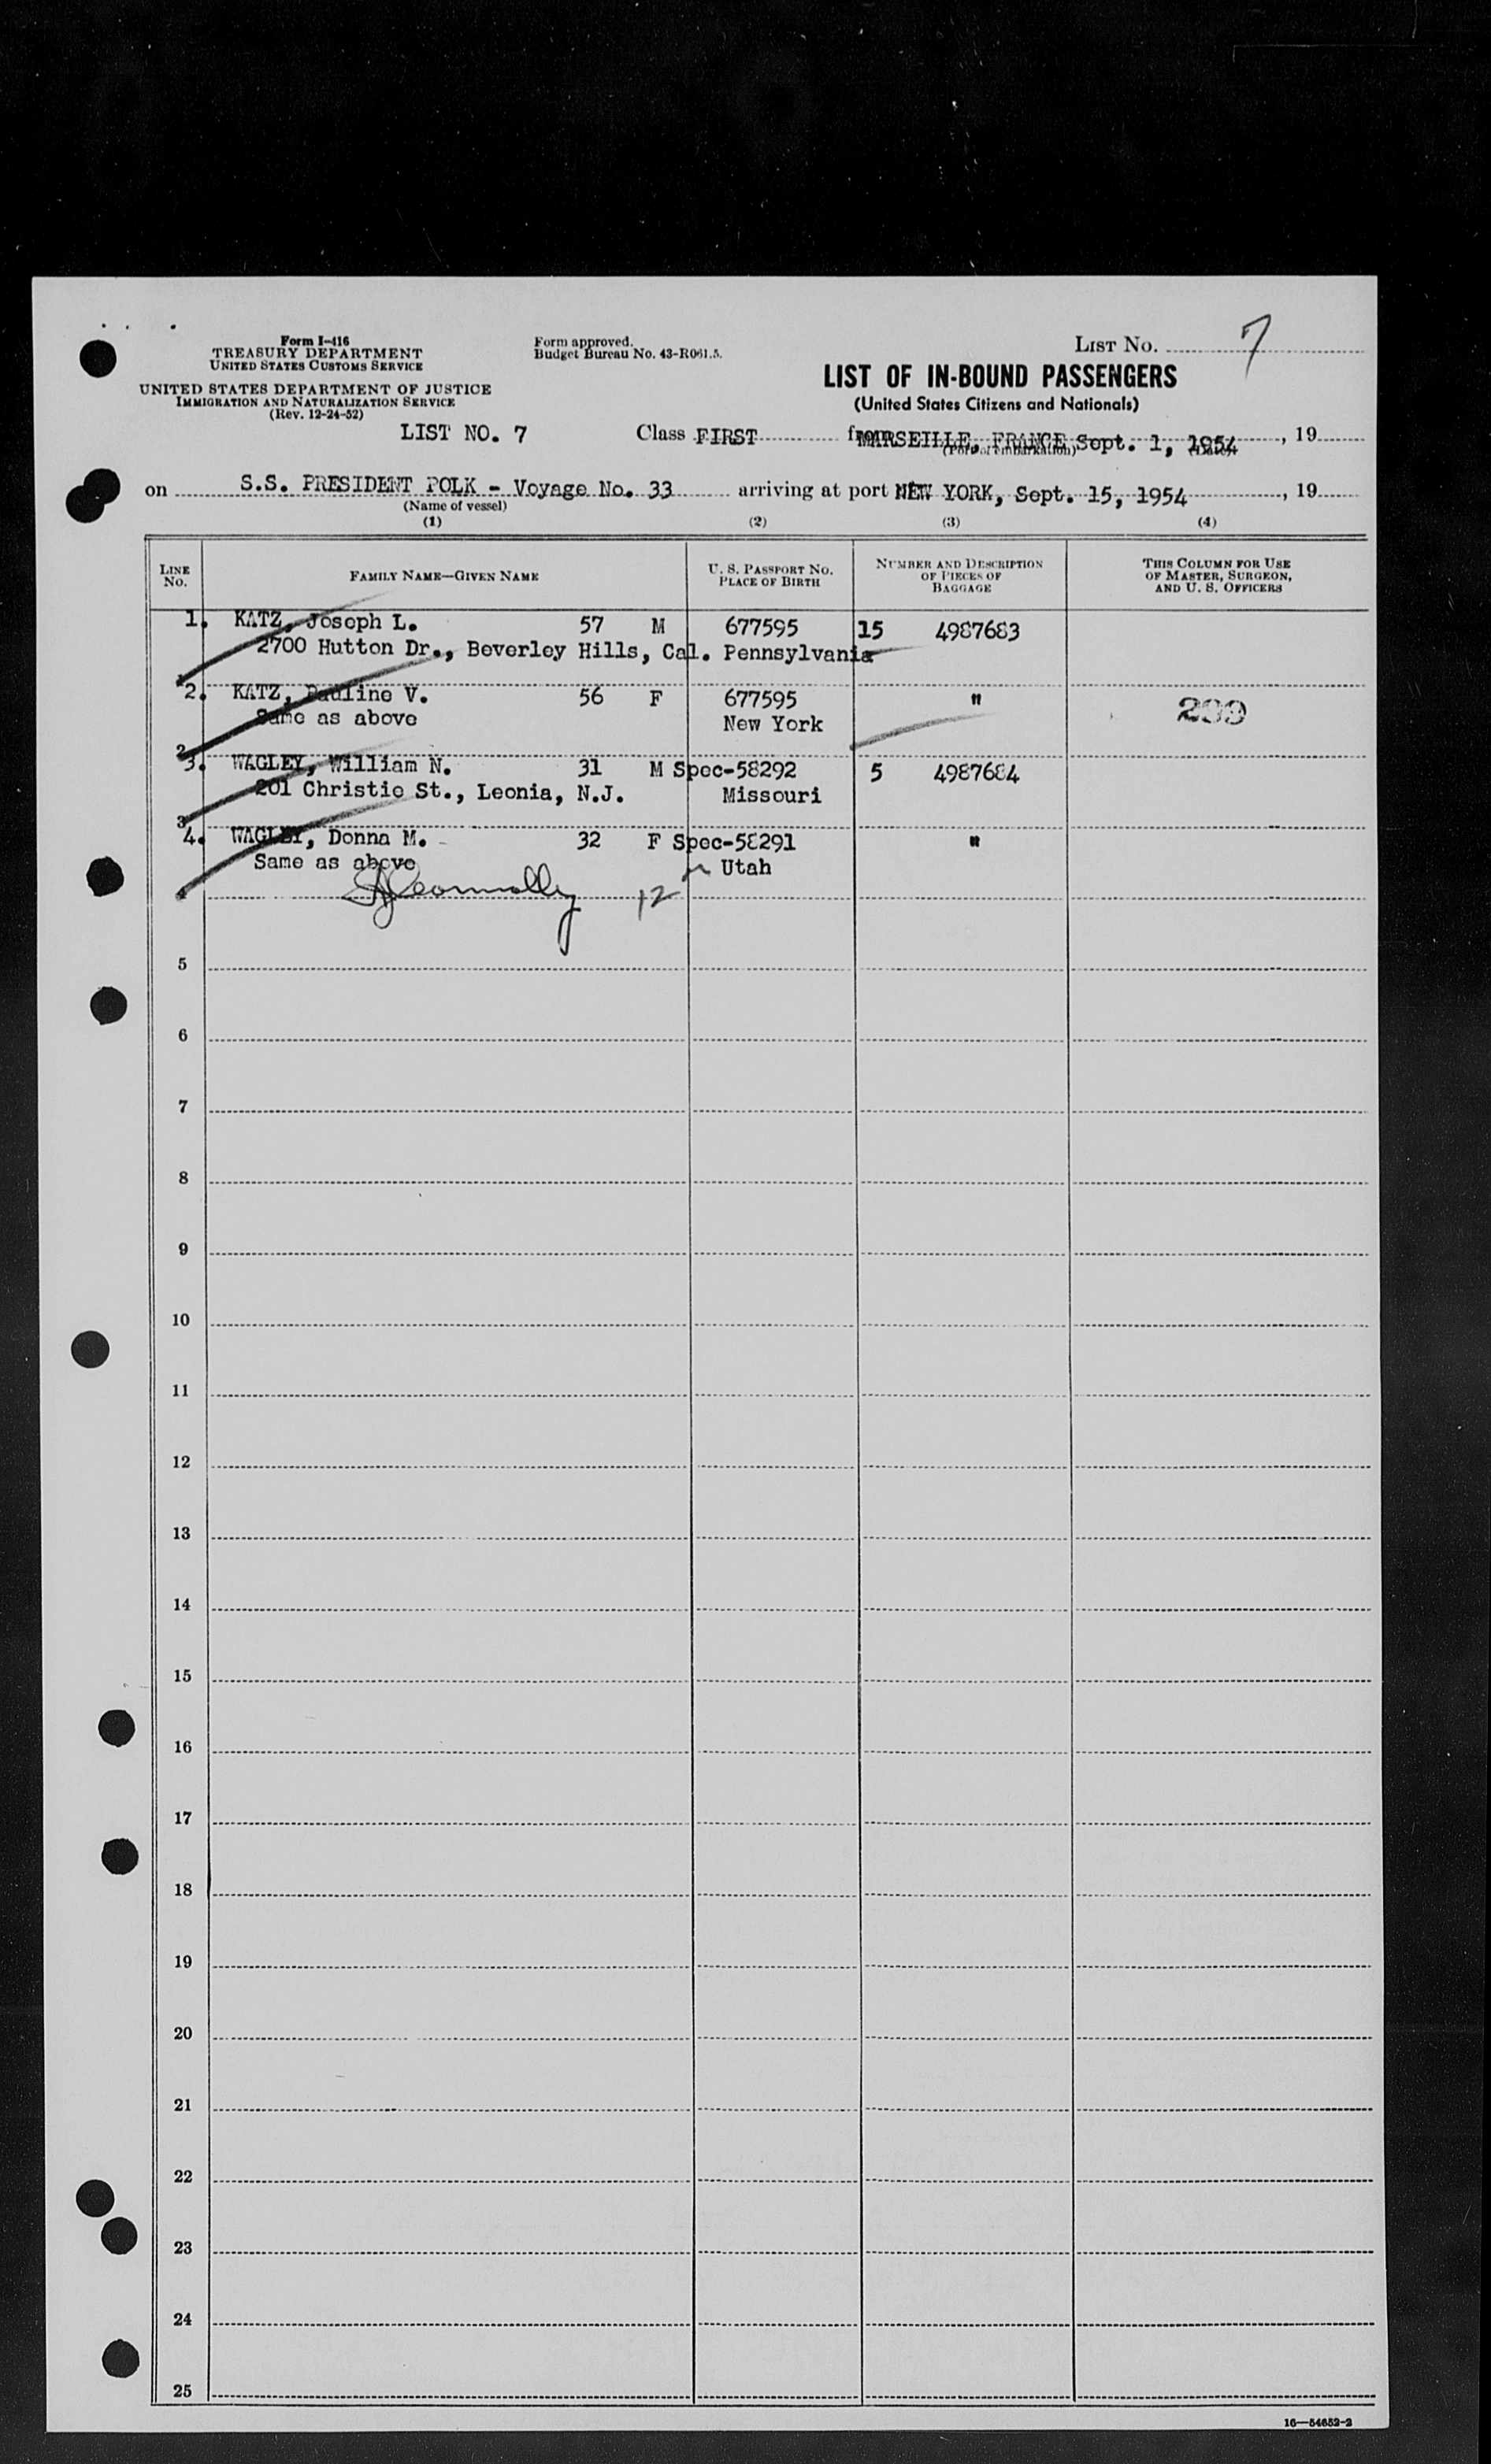 Form I-416
TREASURY DEPARTMENT
UNITED STATES CUSTOMS SERVICE
UNITED STATES DEPARTMENT OF JUSTICE
IMMIGRATION AND NATURALIZATION SERVICE
(Rev. 12-24-52)
Form approved.
Budget Bureau No. 43-R061.5.
LIST No. 7
LIST OF IN-BOUND PASSENGERS
(United States Citizens and Nationals)
LIST NO. 7 Class FIRST from MARSEILLE, FRANCE Sept. 1, 1954, 19
(Port of embarkation) (Date)
on S.S. PRESIDENT POLK - Voyage No. 33 arriving at port NEW YORK, Sept. 15, 1954, 19
(Name of vessel)
(1) (2) (3) (4)
LINE NO. FAMILY NAME—GIVEN NAME U. S. PASSPORT NO. PLACE OF BIRTH NUMBER AND DESCRIPTION OF PIECES OF BAGGAGE THIS COLUMN FOR USE OF MASTER, SURGEON, AND U. S. OFFICERS
1. KATZ, Joseph L. 57 M 677595 15 4987683
2700 Hutton Dr., Beverley Hills, Cal. Pennsylvania
2. KATZ, Pauline V. 56 F 677595 "
Same as above New York
2
3. WAGLEY, William N. 31 M Spec-58292 5 4987684
201 Christie St., Leonia, N.J. Missouri
3
4. WAGLEY, Donna M. 32 F Spec-58291 "
Same as above Utah
4
12
5
6
7
8
9
10
11
12
13
14
15
16
17
18
19
20
21
22
23
24
25
16—54652-2